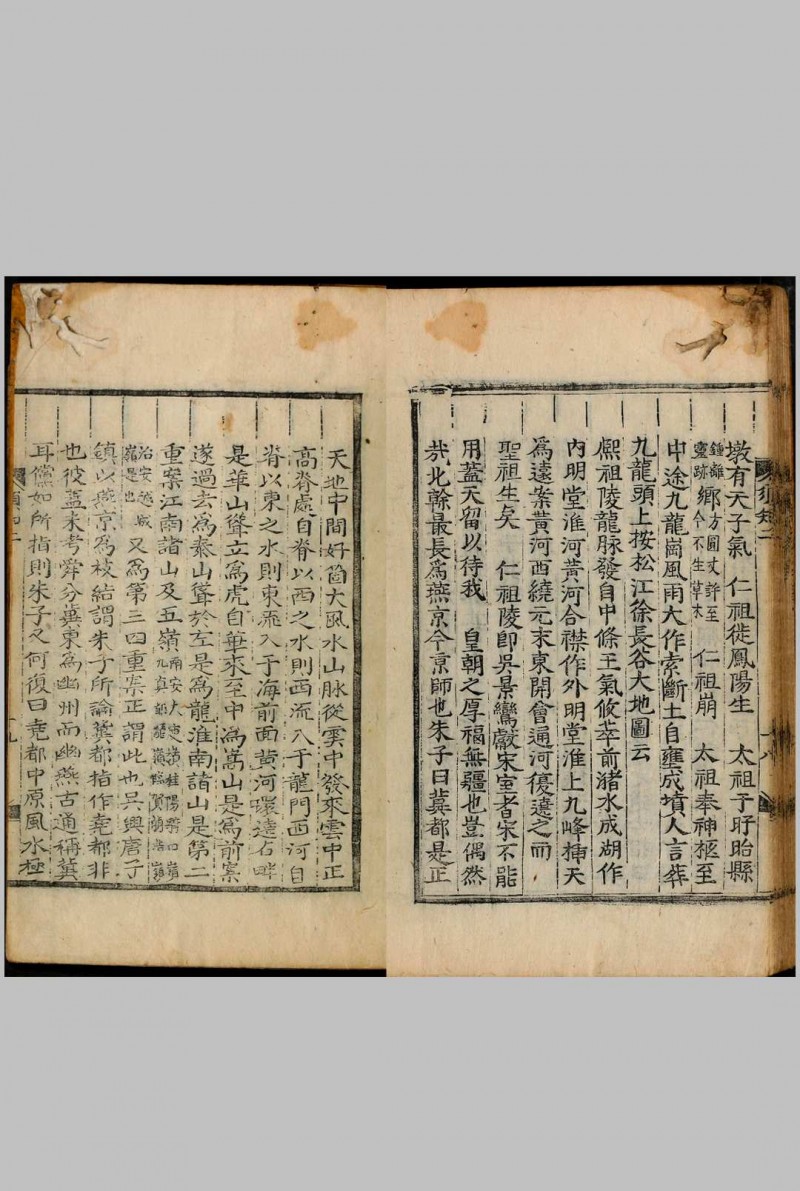 墩有天子氣　仁祖徙鳳陽生　太祖于盱眙縣
鍾離靈跡鄉方圓丈許至今不生草木　仁祖崩　太祖奉神柩至
中途九龍崗風雨大作索斷土自壅成墳人言葬
九龍頭上按松江徐長谷大地圖云
熈祖陵龍脉發自中條王氣攸萃前瀦水成湖作
內明堂淮河黃河合襟作外明堂淮上九峰揷天
爲遠案黃河西繞元末東開會通河復遶之而
聖祖生矣　仁祖陵卽吳景鸞獻宋室者宋不能
用蓋天留以待我　皇朝之厚福無疆也豈偶然
㢤北榦最長爲燕京今京師也朱子曰冀都是正
天地中間好箇大風水山脉從雲中發來雲中正
高脊處自脊以西之水則西流入于龍門西河自
脊以東之水則東流入于海前面黃河環遶右畔
是華山聳立爲虎自華來至中爲嵩山是爲前案
遂過去爲泰山聳於左是爲龍淮南諸山是第二
重案江南諸山及五嶺
又爲第三四重案正謂此也吳興唐子
鎮以燕京爲枝結謂朱子所論冀都指作堯都非
也彼蓋未考舜分冀東爲幽州而幽燕古通稱冀
耳儒如所指則朱子又何復曰堯都中原風水極